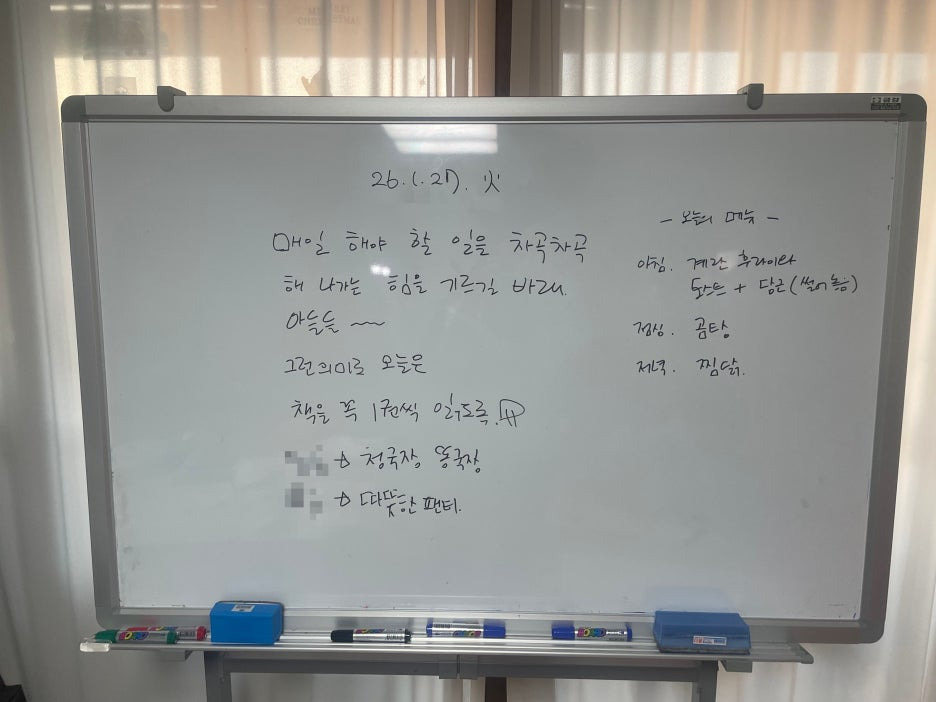 26.1.27. 火
매일 해야 할 일을 차곡차곡
해 나가는 힘을 기르길 바래.
아들들 ~
그런의미로 오늘은
책을 꼭 1권씩 읽도록.
→ 청국장 똥국장
→ 따뜻한 팬티.
- 오늘의 메뉴 -
아침. 계란 후라이와
토스트 + 당근(썰어 놓음)
점심. 곰탕
저녁. 찜닭.